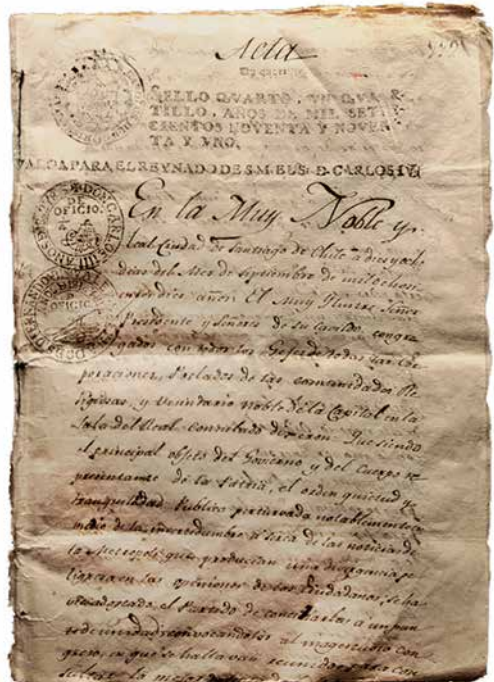 Acta
SELLO QVARTO, VN QVAR-
TILLO, AÑOS DE MIL SETE-
CIENTOS NOVENTA Y NOVEN-
TA Y VNO.
VALGA PARA EL REYNADO DE S.M. EL S. D. CARLOS IV
En la Muy Noble y
leal Ciudad de Santiago de Chile a dies y och
dias del Mes de Septiembre de mil ochoci
entos dies años. El Muy Ylustre Señor
Presidente y Señores de su Cavildo, congre
gados con todos los Gefes de todas las Cor
poraciones, Prelados de las comunidades Re
ligiosas, y Vecindario Noble de la Capital en la
Sala del Real Consulado dixeron: Que siendo
el principal objeto del Govierno y del Cuerpo re
presentante de la Patria, el orden quietud y
tranquilidad Publica perturvada notablemente en
medio de la incertidumbre a cerca de las noticias de
la Metropoli que producian una divergencia pe
ligrosa en las opiniones de los Ciudadanos, se ha
via adoptado el Partido de conciliarlas a un pun
to de unidad convocandolos al magestuoso con
greso, en que se hallavan reunidos para con
sultar la mejor defensa del